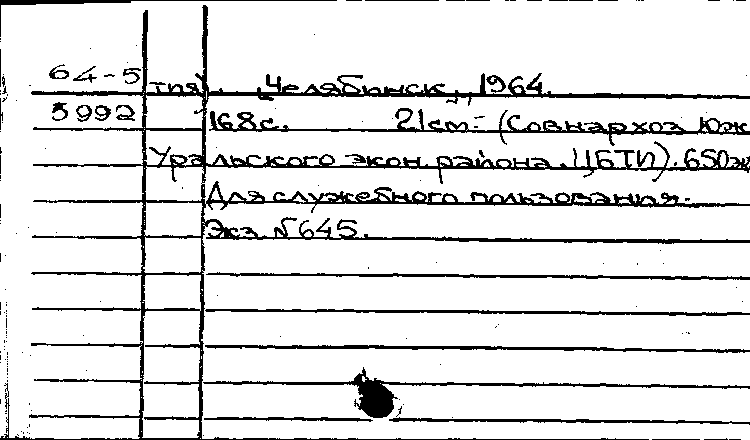 64-5 тия). Челябинск, 1964.
5992 168с. 21см.- (Совнархоз Юж
Уральского экон.района.ЦБТИ).650эк
Для служебного пользования.
Экз. №645.